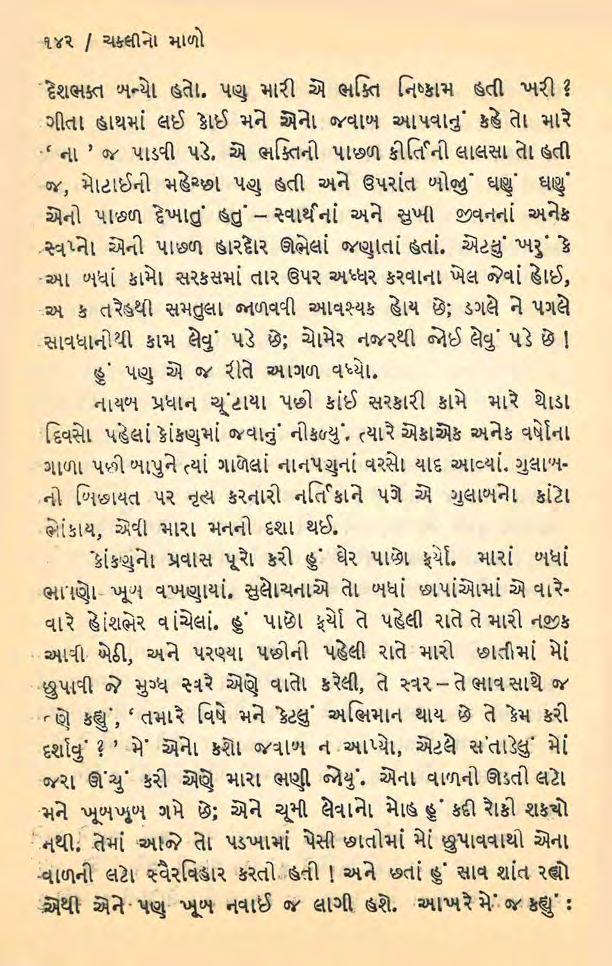 ૧૪૨ / ચકલીનો માળો
દેશભક્ત બન્યો હતો. પણ મારી એ ભક્તિ નિષ્કામ હતી ખરી ?
ગીતા હાથમાં લઈ કોઈ મને એનો જવાબ આપવાનું કહે તો મારે
‘ ના ’ જ પાડવી પડે. એ ભક્તિની પાછળ કીર્તિની લાલસા તો હતી
જ, મોટાઈની મહેચ્છા પણ હતી અને ઉપરાંત બીજું ઘણું ઘણું
એની પાછળ દેખાતું હતું – સ્વાર્થનાં અને સુખી જીવનનાં અનેક
સ્વપ્નો એની પાછળ હારદોર ઊભેલાં જણાતાં હતાં. એટલું ખરું કે
આ બધાં કામો સરકસમાં તાર ઉપર અધ્ધર કરવાના ખેલ જેવાં હોઈ,
અ ક તરેહથી સમતુલા જાળવવી આવશ્યક હોય છે; ડગલે ને પગલે
સાવધાનીથી કામ લેવું પડે છે; ચોમેર નજરથી જોઈ લેવું પડે છે !
હું પણ એ જ રીતે આગળ વધ્યો.
નાયબ પ્રધાન ચૂંટાયા પછી કાંઈ સરકારી કામે મારે થોડા
દિવસો પહેલાં કોંકણમાં જવાનું નીકળ્યું. ત્યારે એકાએક અનેક વર્ષોના
ગાળા પછી બાપુને ત્યાં ગાળેલાં નાનપણનાં વરસો યાદ આવ્યાં. ગુલાબ-
ની બિછાયત પર નૃત્ય કરનારી નર્તિકાને પગે એ ગુલાબનો કાંટો
ભોંકાય, એવી મારા મનની દશા થઈ.
કોંકણનો પ્રવાસ પૂરો કરી હું ઘેર પાછો ફર્યો. મારાં બધાં
ભાષણો ખૂબ વખણાયાં. સુલોચનાએ તો બધાં છાપાંઓમાં એ વારે-
વારે હોંશભેર વાંચેલાં. હું પાછો ફર્યો તે પહેલી રાતે તે મારી નજીક
આવી બેઠી, અને પરણ્યા પછીની પહેલી રાતે મારી છાતીમાં મોં
છુપાવી જે મુગ્ધ સ્વરે એણે વાતો કરેલી, તે સ્વર – તે ભાવ સાથે જ
ણે કહ્યું, ‘ તમારે વિષે મને કેટલું અભિમાન થાય છે તે કેમ કરી
દર્શાવું ? ’ મેં એનો કશો જવાબ ન આપ્યો, એટલે સંતાડેલું મોં
જરા ઊંચું કરી એણે મારા ભણી જોયું. એના વાળની ઊડતી લટો
મને ખૂબખૂબ ગમે છે; એને ચૂમી લેવાનો મોહ હું કદી રોકી શકચો
નથી. તેમાં આજે તો પડખામાં પેસી છાતીમાં મોં છુપાવવાથી એના
વાળની લટો સ્વૈરવિહાર કરતી હતી ! અને છતાં હું સાવ શાંત રહ્યો
એથી એને પણ ખૂબ નવાઈ જ લાગી હશે. આખરે મેં જ કહ્યું :